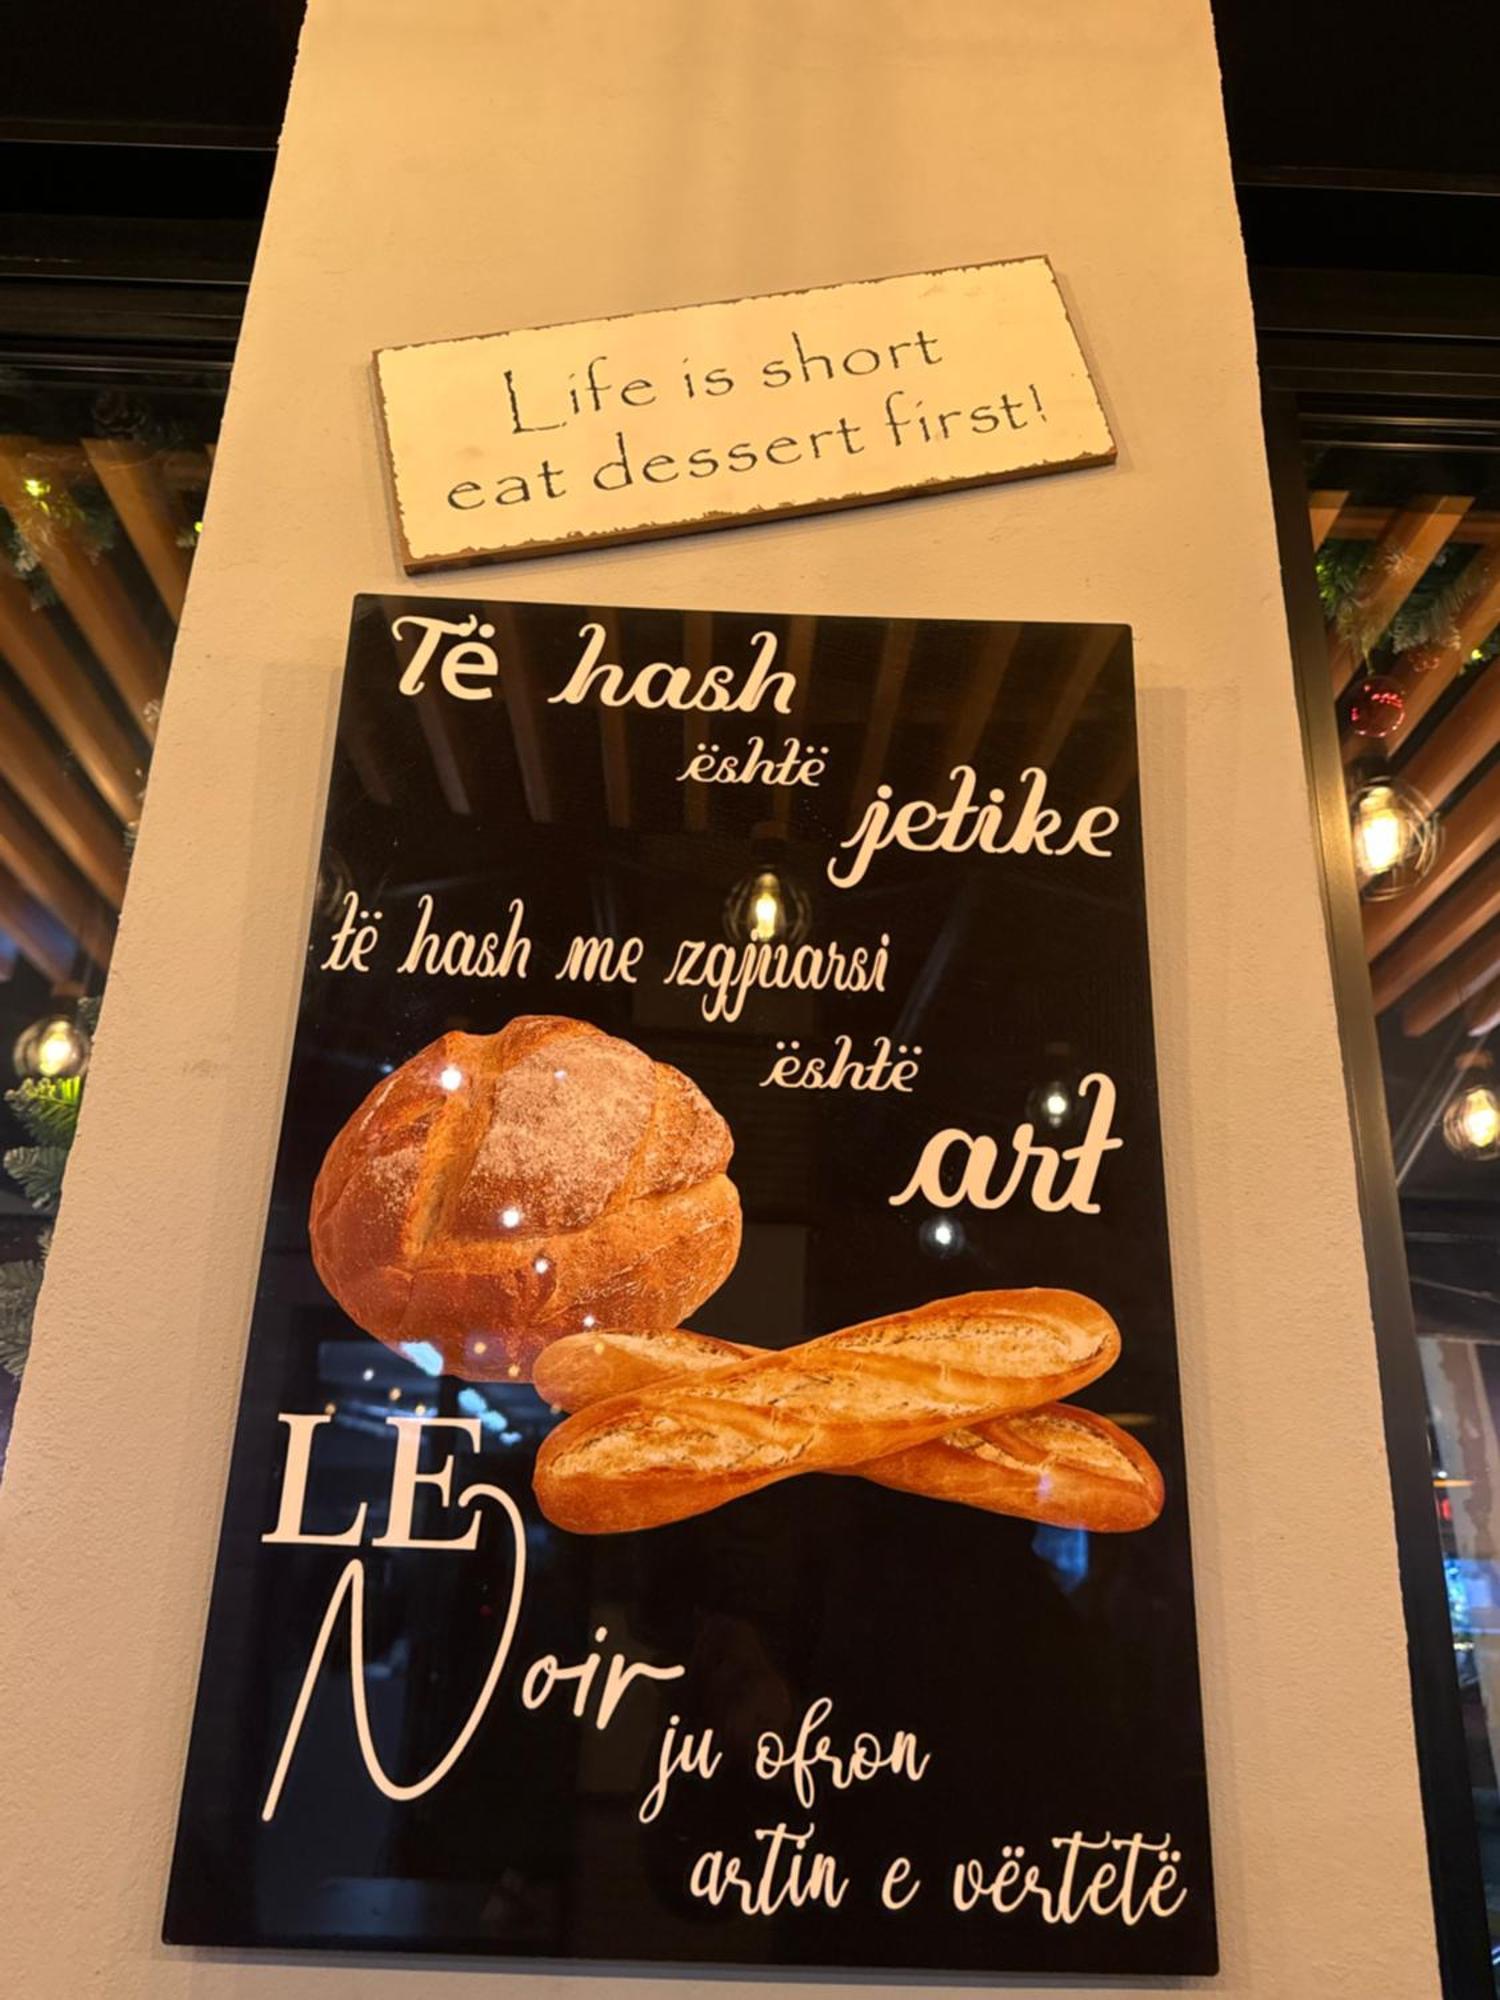 Life is short
eat dessert first!
Të hash
është
jetike
të hash me zgjuarsi
është
art
LE
Noir
ju ofron
artin e vërtetë